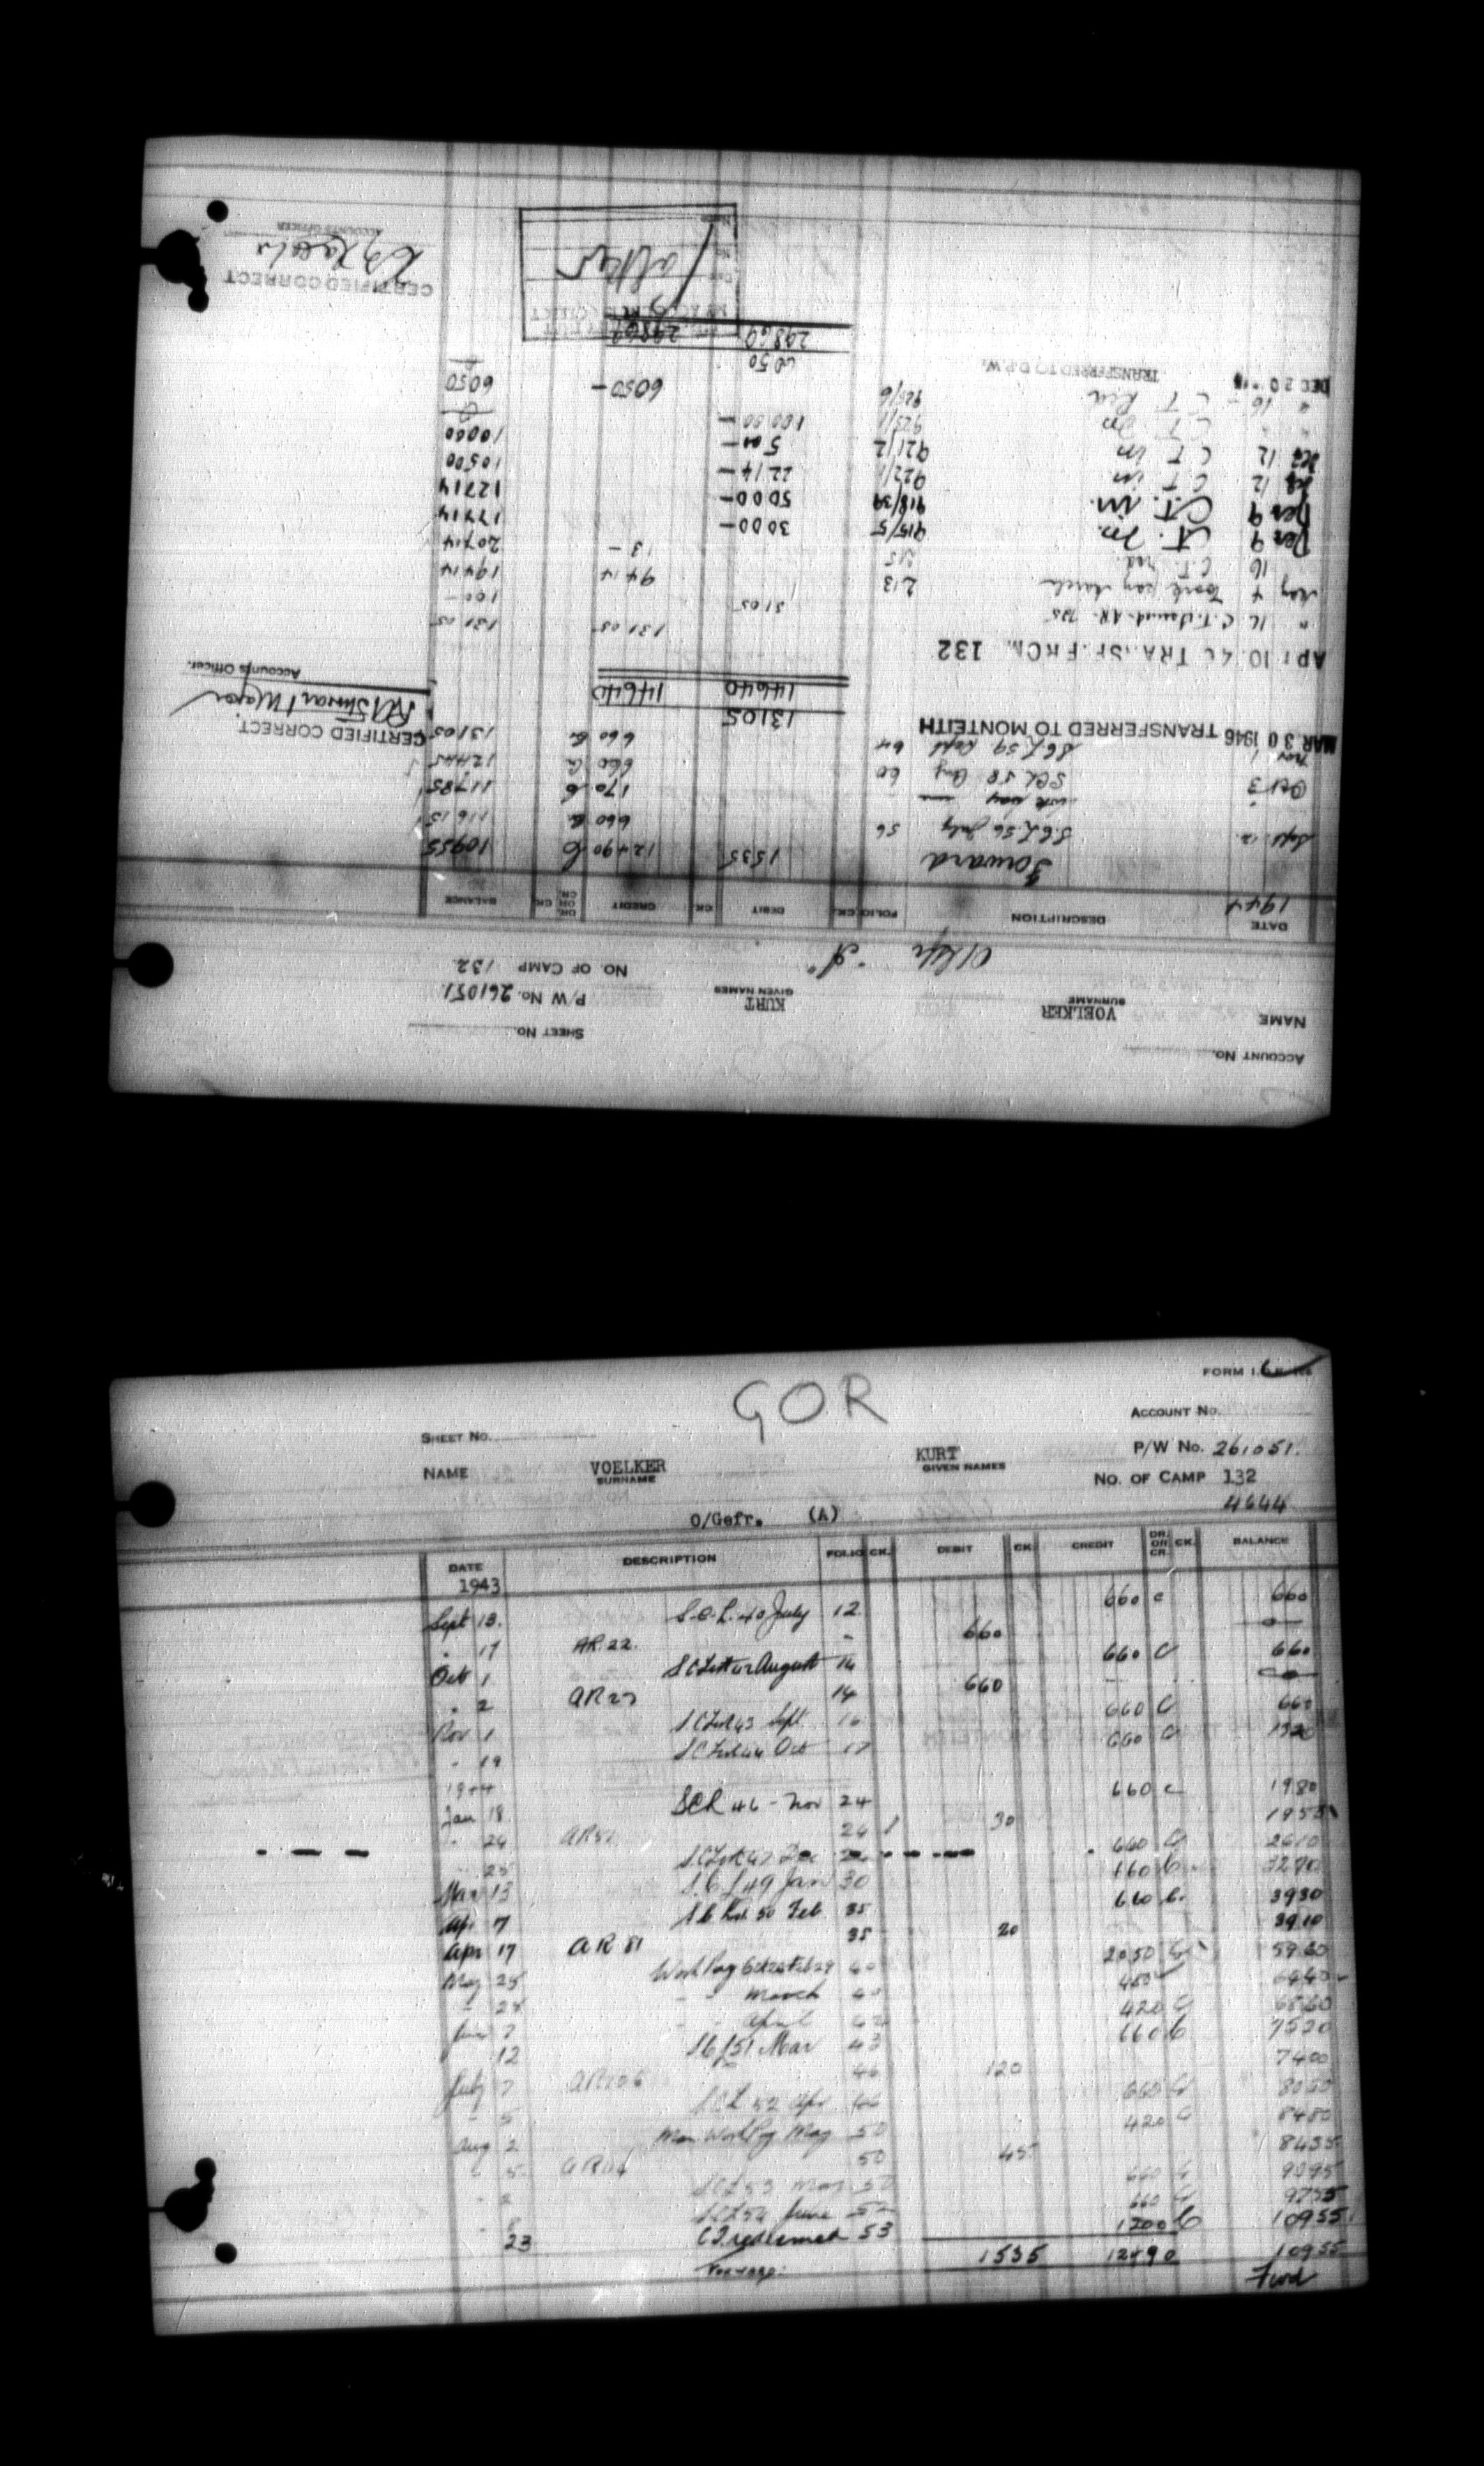 ACCOUNT NO.
SHEET NO.
NAME VOELKER KURT P/W No. 261051.
SURNAME GIVEN NAMES NO. OF CAMP 132
O/Gefr "A"
DATE DESCRIPTION FOLIO CK. DEBIT CK. CREDIT DR. OR CR. CK. BALANCE
1944
Forward 1535 12490 C 10955
Sept 12 S.C.L 56 July 56 660 C 11615
170 C 11785
Oct 3 SCL 58 Aug 60 660 C 12445
Nov 1 SCL 59 Sept 64 660 C 13105
MAR 30 1946 TRANSFERRED TO MONTEITH 13105
14640 14640
CERTIFIED CORRECT.
Major
Accounts Officer.
APR 10.46 TRANSF. FROM 132 13105 13105
" 16 3105 100 -
May 7 Work pay March 213 9414 19414
16 C.T. red. 215 13 - 20714
Dec 9 C.T. In. 915/5 3000 - 17714
Dec 9 C.T. In. 918/39 5000 - 12714
12 C T In 922/1 2214 - 10500
12 C T In 921/2 500 - 10000
C T In 923/1 10000 -
" 16 C T Red 925/6 6050 - 6050
DEC 20 TRANSFERRED TO D.P.W. 6050
29869 29869
CERTIFIED CORRECT
ACCOUNTS OFFICER
GOR
FORM I.
ACCOUNT NO.
SHEET NO.
P/W No. 261051.
NAME VOELKER KURT
SURNAME GIVEN NAMES
NO. OF CAMP 132
4644
O/Gefr. (A)
DATE DESCRIPTION FOLIO CK. DEBIT CK. CREDIT DR. OR CR. CK. BALANCE
1943
Sept 13. S.C.L. 40 July 12 660 C 660
" 17 AR 22. - 660 0
Oct 1 S C List 42 August 14 660 C 660
" 2 AR 27 14 660 0
Nov 1 S.C List 43 Sept. 16 660 C 660
" 19 S C List 44 Oct 17 660 C 1320
1944
Jan 18 SCL 46 - Nov 24 660 C 1980
" 24 AR 51 24 30 1950
" 25 S.C List 47 Dec 660 C 2610
Mar 13 S.C.L 49 Jan 30 660 C 3270
Apr 7 S.C. List 50 Feb. 35 660 C. 3930
Apr 17 AR 81 35 20 3910
May 25 Work Pay Oct 26 Feb 29 40 2050 C 5960
" 28 - - March 40 6440
June 7 April 42 420 C 6860
12 S C L 51 Mar 43 660 C 7520
July 7 AR 106 46 120 7400
" 5 S.C.L 52 Apr 46 660 C 8060
Aug 2 Work Pay May 50 420 C 8480
" 5 50 45 8435
" 2 SCL 53 May 52 660 C 9095
" 8 SCL 54 June 52 660 C 9755
23 C.T. redeemed 53 1200 C 10955
Forward: 1535 12490 10955
Fwd